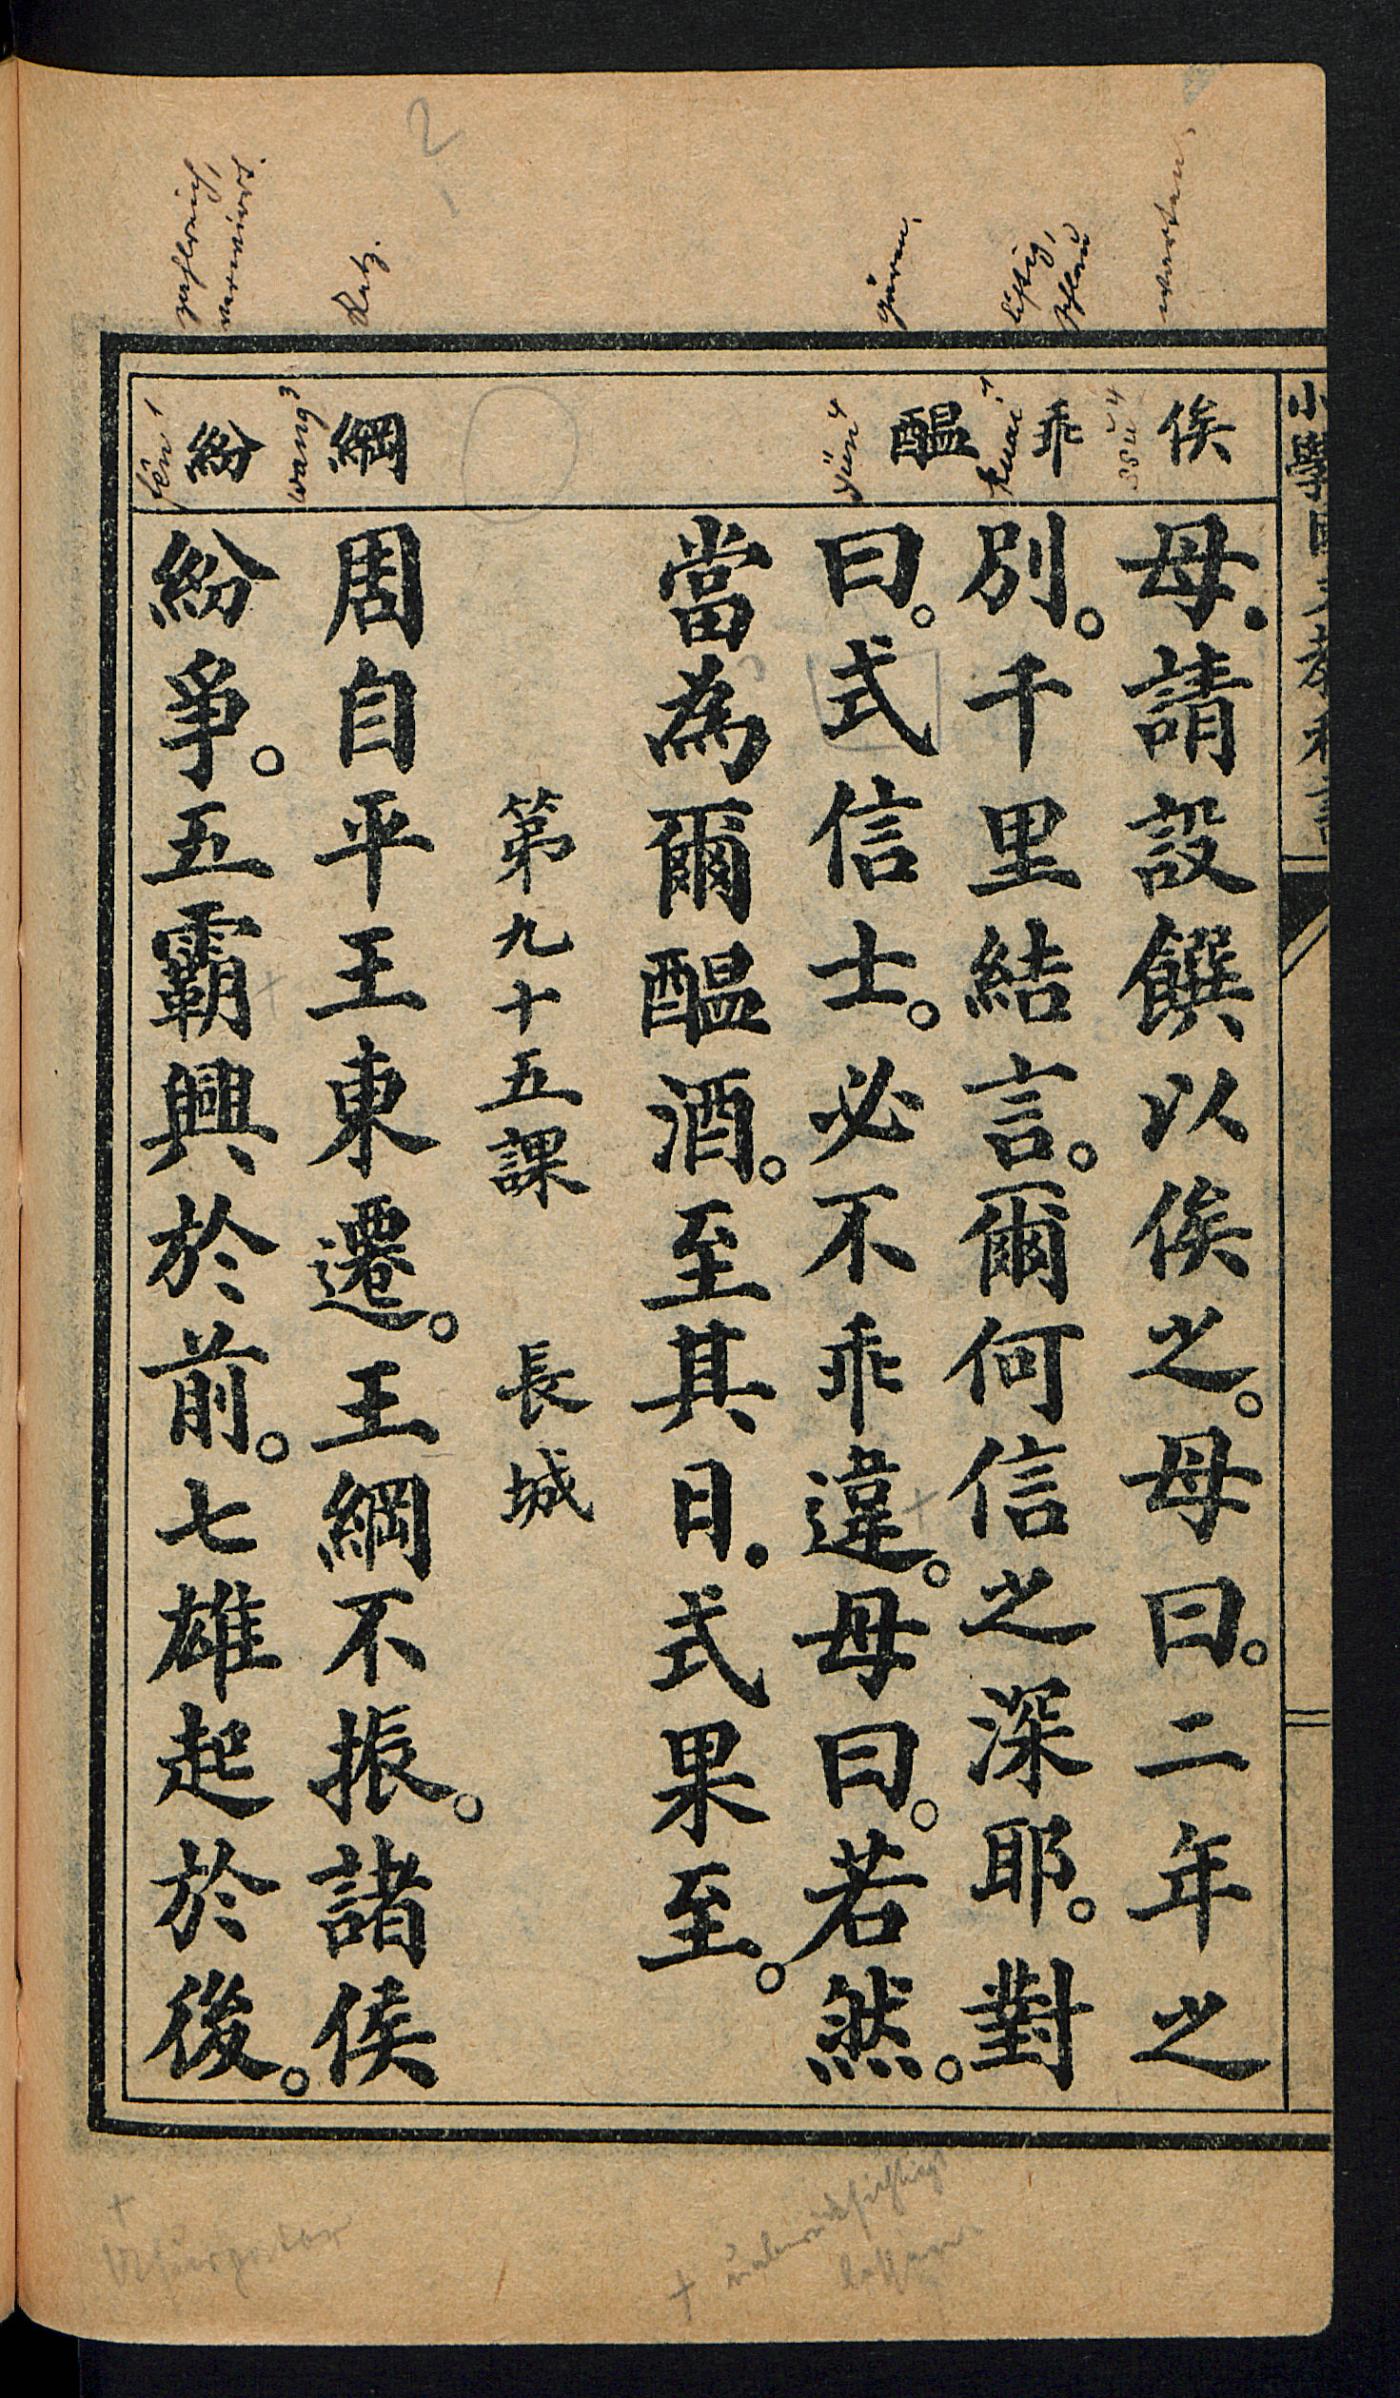 母．請設饌以俟之。母曰。二年之
別。千里結言。爾何信之深耶。對
曰。式信士。必不乖違。母曰。若然。
當為爾醞酒。至其日．式果至。
第九十五課　長城
周自平王東遷。王綱不振。諸侯
紛爭。五霸興於前。七雄起於後。
俟
乖
醞
綱
紛
ssŭ4
kuai1
yün4
wang3
fên1
warten
listig,
gären
Netz
zahlreich,
verwirrt.
2
+
Usurpator
+